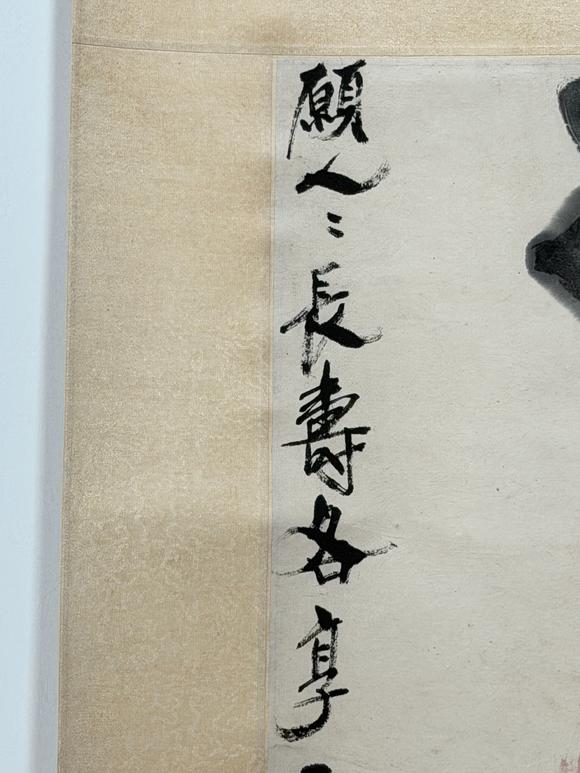 願人〻長壽各享